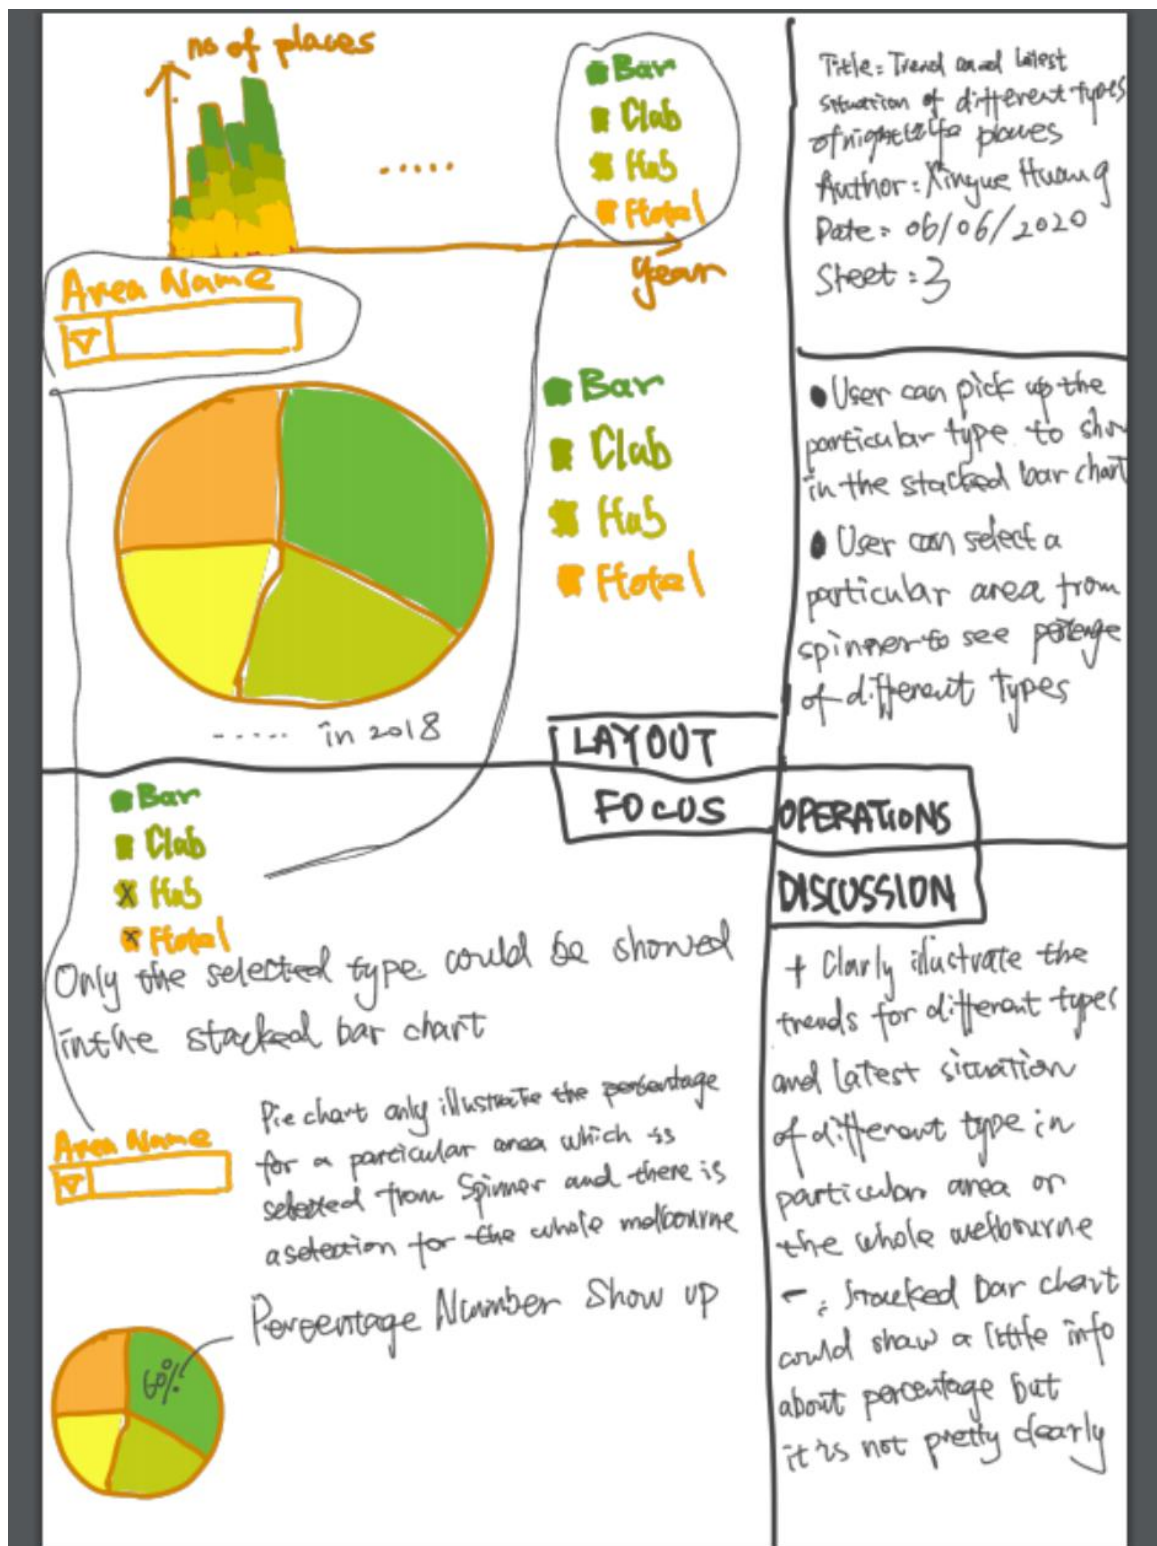 no of places
Bar
Club
Hub
Hotel
year
Area Name
Bar
Club
Hub
Hotel
..... in 2018
LAYOUT
Title: Trend and latest
situation of different types
of nightlife places
Author: Xingyue Huang
Date: 06/06/2020
Sheet: 3
User can pick up the
particular type to show
in the stacked bar chart
User can select a
particular area from
spinner to see
of different types
OPERATIONS
FOCUS
Bar
Club
Hub
Hotel
Only the selected type could be showed
in the stacked bar chart
Area Name
Pie chart only illustrate the percentage
for a particular area which is
selected from Spinner and there is
a selection for the whole melbourne
Percentage Number Show up
60%
DISCUSSION
+ Clarly illustrate the
trends for different types
and latest situation
of different type in
particular area or
the whole melbourne
- : Stacked bar chart
could show a little info
about percentage but
it is not pretty clearly